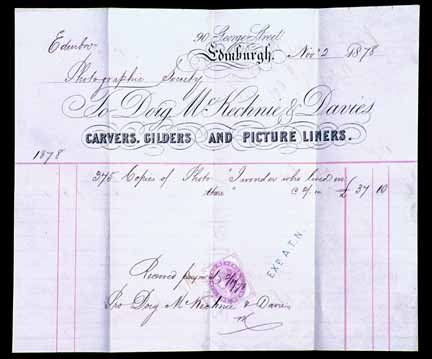 90 George Street
Edinburgh, Novr 2 1878
Edinbr
Photographic Society
To Doig McKechnie & Davies
CARVERS. GILDERS AND PICTURE LINERS.
1878
375 Copies of Photo "I wonder who lived in
there" @ 2/- 37 10
Received payment
EXP A.T.N
Pro Doig McKechnie & Davies